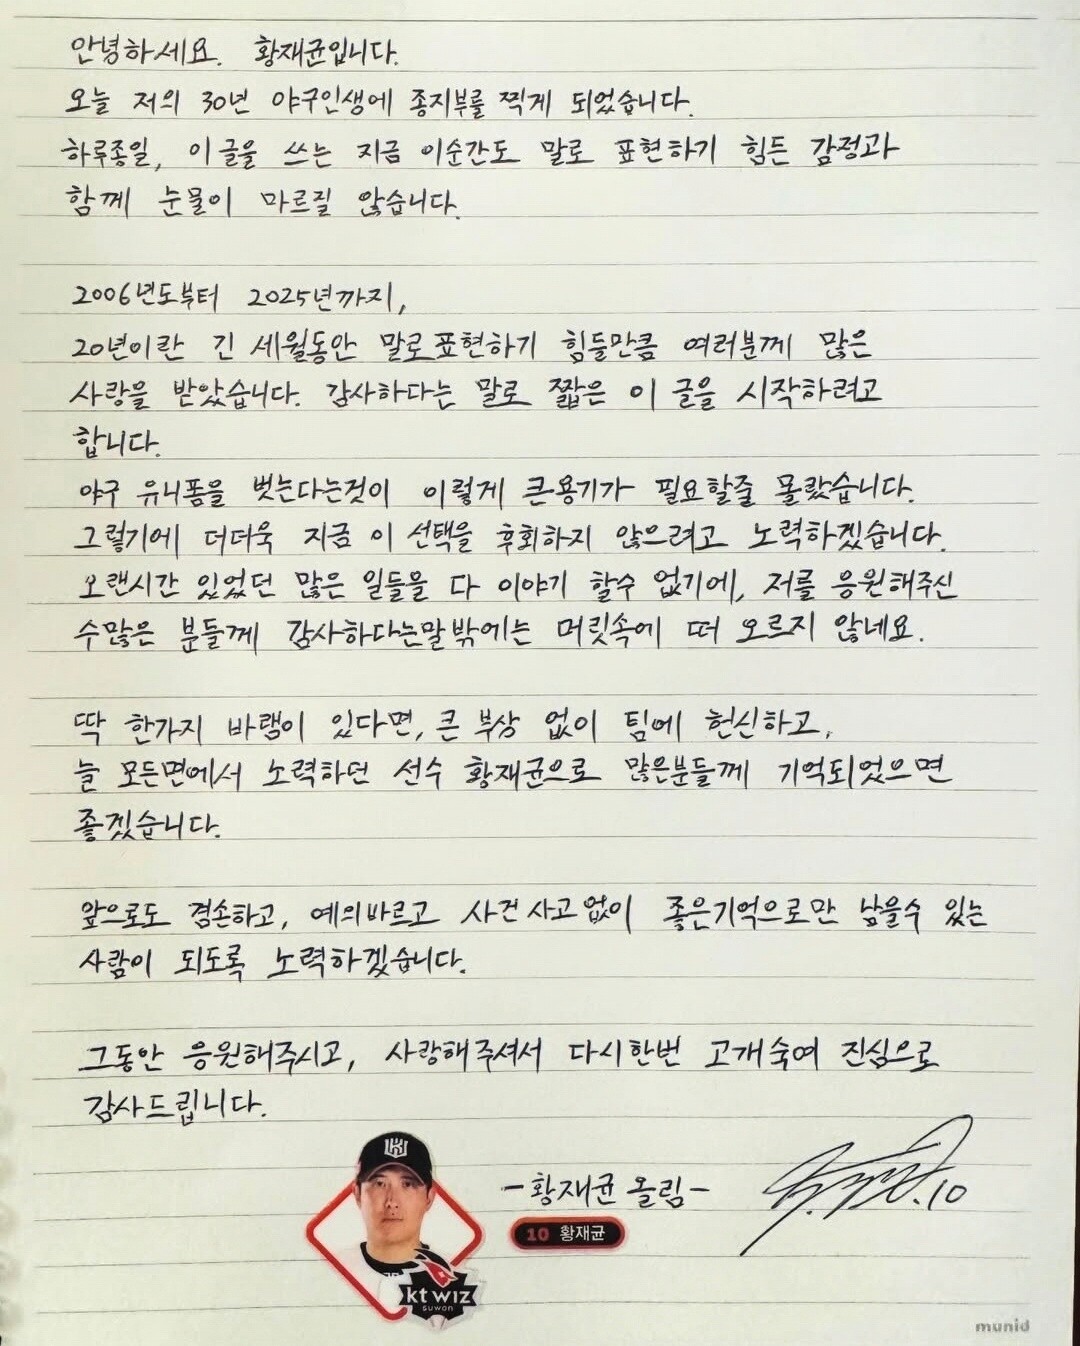 안녕하세요. 황재균입니다.
오늘 저의 30년 야구인생에 종지부를 찍게 되었습니다.
하루종일, 이 글을 쓰는 지금 이순간도 말로 표현하기 힘든 감정과
함께 눈물이 마르질 않습니다.
2006년도부터 2025년까지,
20년이란 긴 세월동안 말로표현하기 힘들만큼 여러분께 많은
사랑을 받았습니다. 감사하다는 말로 짧은 이 글을 시작하려고
합니다.
야구 유니폼을 벗는다는것이 이렇게 큰용기가 필요할줄 몰랐습니다.
그렇기에 더더욱 지금 이 선택을 후회하지 않으려고 노력하겠습니다.
오랜시간 있었던 많은 일들을 다 이야기 할수 없기에, 저를 응원해주신
수많은 분들께 감사하다는말밖에는 머릿속에 떠 오르지 않네요.
딱 한가지 바램이 있다면, 큰 부상 없이 팀에 헌신하고,
늘 모든면에서 노력하던 선수 황재균으로 많은분들께 기억되었으면
좋겠습니다.
앞으로도 겸손하고, 예의바르고 사건사고없이 좋은기억으로만 남을수 있는
사람이 되도록 노력하겠습니다.
그동안 응원해주시고, 사랑해주셔서 다시한번 고개숙여 진심으로
감사드립니다.
-황재균 올림-
.10
10 황재균
kt wiz
suwon
munid